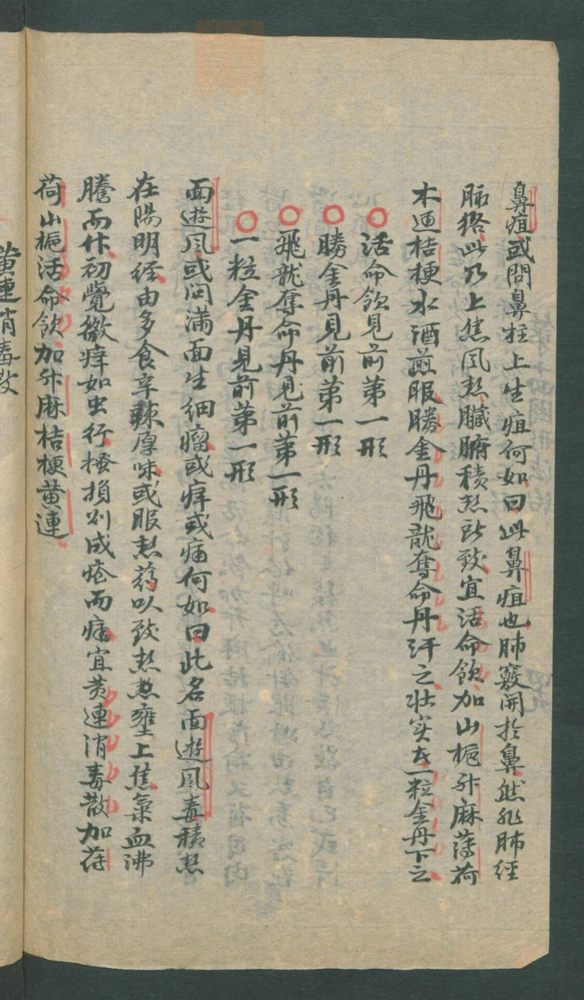 鼻疽或問鼻柱上生疽何如曰此鼻疽也肺竅開於鼻然非肺經
脈絡此乃上焦風熱臟腑積熱所致宜活命飲加山梔升麻薄荷
木通桔梗水酒煎服勝金丹飛龍奪命丹汗之壯实者一粒金丹下之
○活命飲見前第一形
○勝金丹見前第一形
○飛龍奪命丹見前第一形
○一粒金丹見前第一形
面遊风或问满面生细瘤或痒或痛何如曰此名面遊风毒積热
在陽明經由多食辛辣厚味或服热药以致热盛壅上焦氣血沸
騰而作初覺微痒如虫行搔損则成疮而痛宜黄連消毒散加荷
荷山梔活命飲加升麻桔梗黄連
黄連消毒散